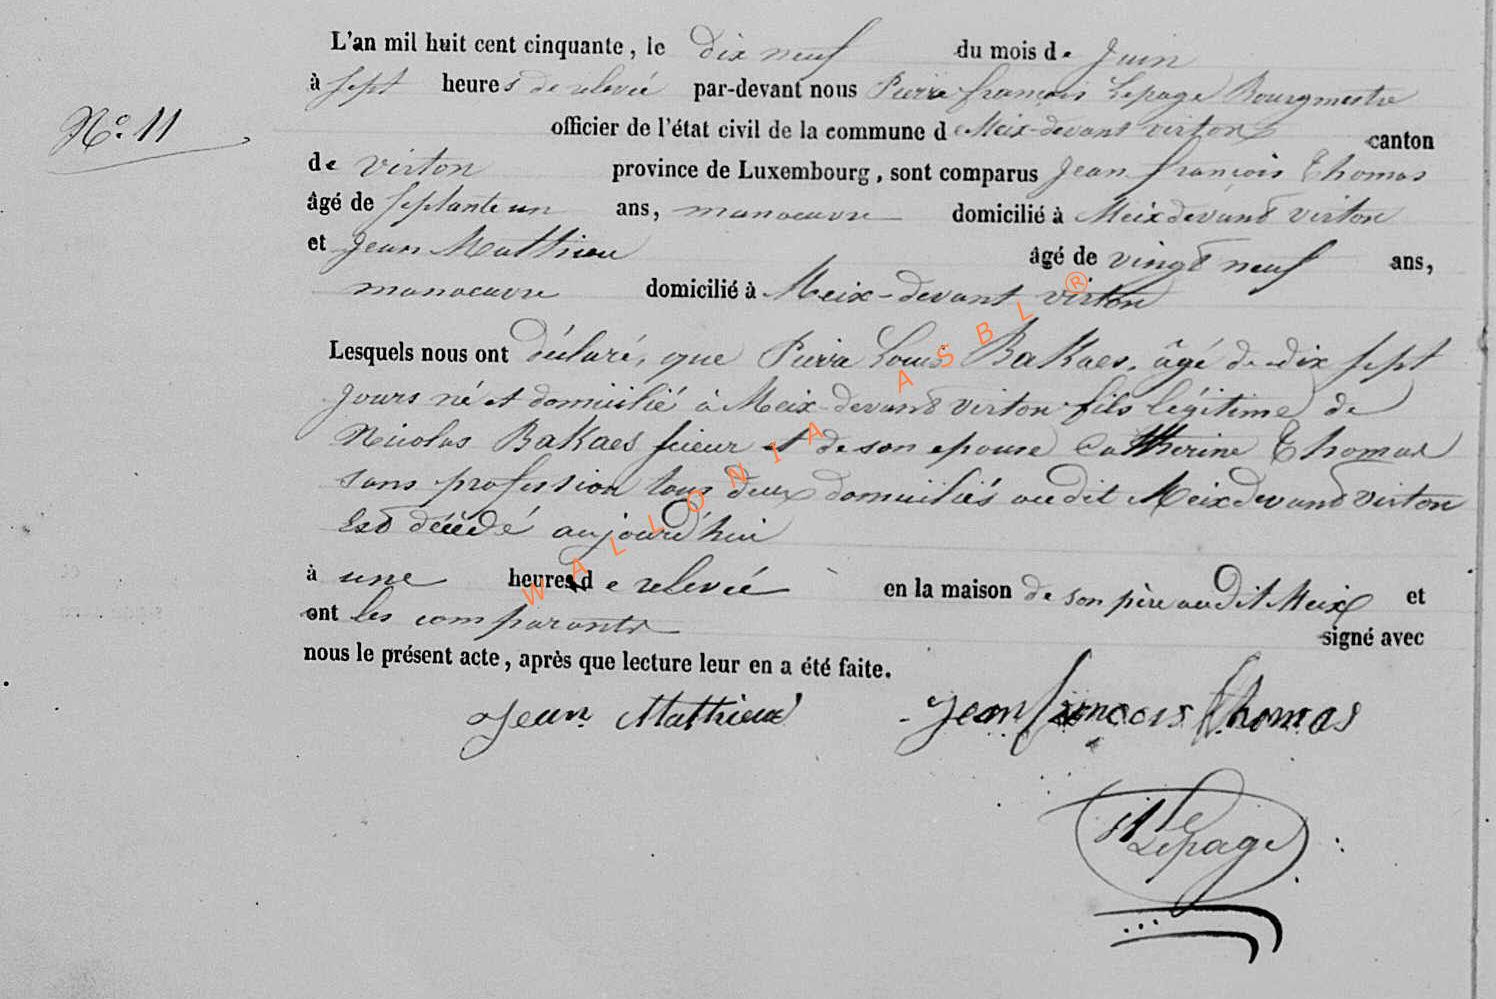 L'an mil huit cent cinquante, le dix neuf du mois de Juin
à sept heures de relevée par-devant nous Pierre françois Lepage Bourgmestre
N.° 11
officier de l'état civil de la commune de Meix-devant virton canton
de virton province de Luxembourg, sont comparus Jean françois Thomas
âgé de septante un ans, manoeuvre domicilié à Meix devant virton
et Jean Mathieu âgé de vingt neuf ans,
manoeuvre domicilié à Meix-devant virton
Lesquels nous ont déclaré, que Pierre Louis BaKaes, âgé de dix sept
jours né et domicilié à Meix-devant virton fils légitime de
Nicolas BaKaes scieur et de son epouse Catherine Thomas
sans profession tous deux domiciliés audit Meix devant virton
Est décédé aujourd'hui
à une heures de relevée en la maison de son père audit Meix et
ont les comparants signé avec
nous le présent acte, après que lecture leur en a été faite.
Jean Mathieu Jean françois thomas
Lepage
WALLONIA ASBL ®